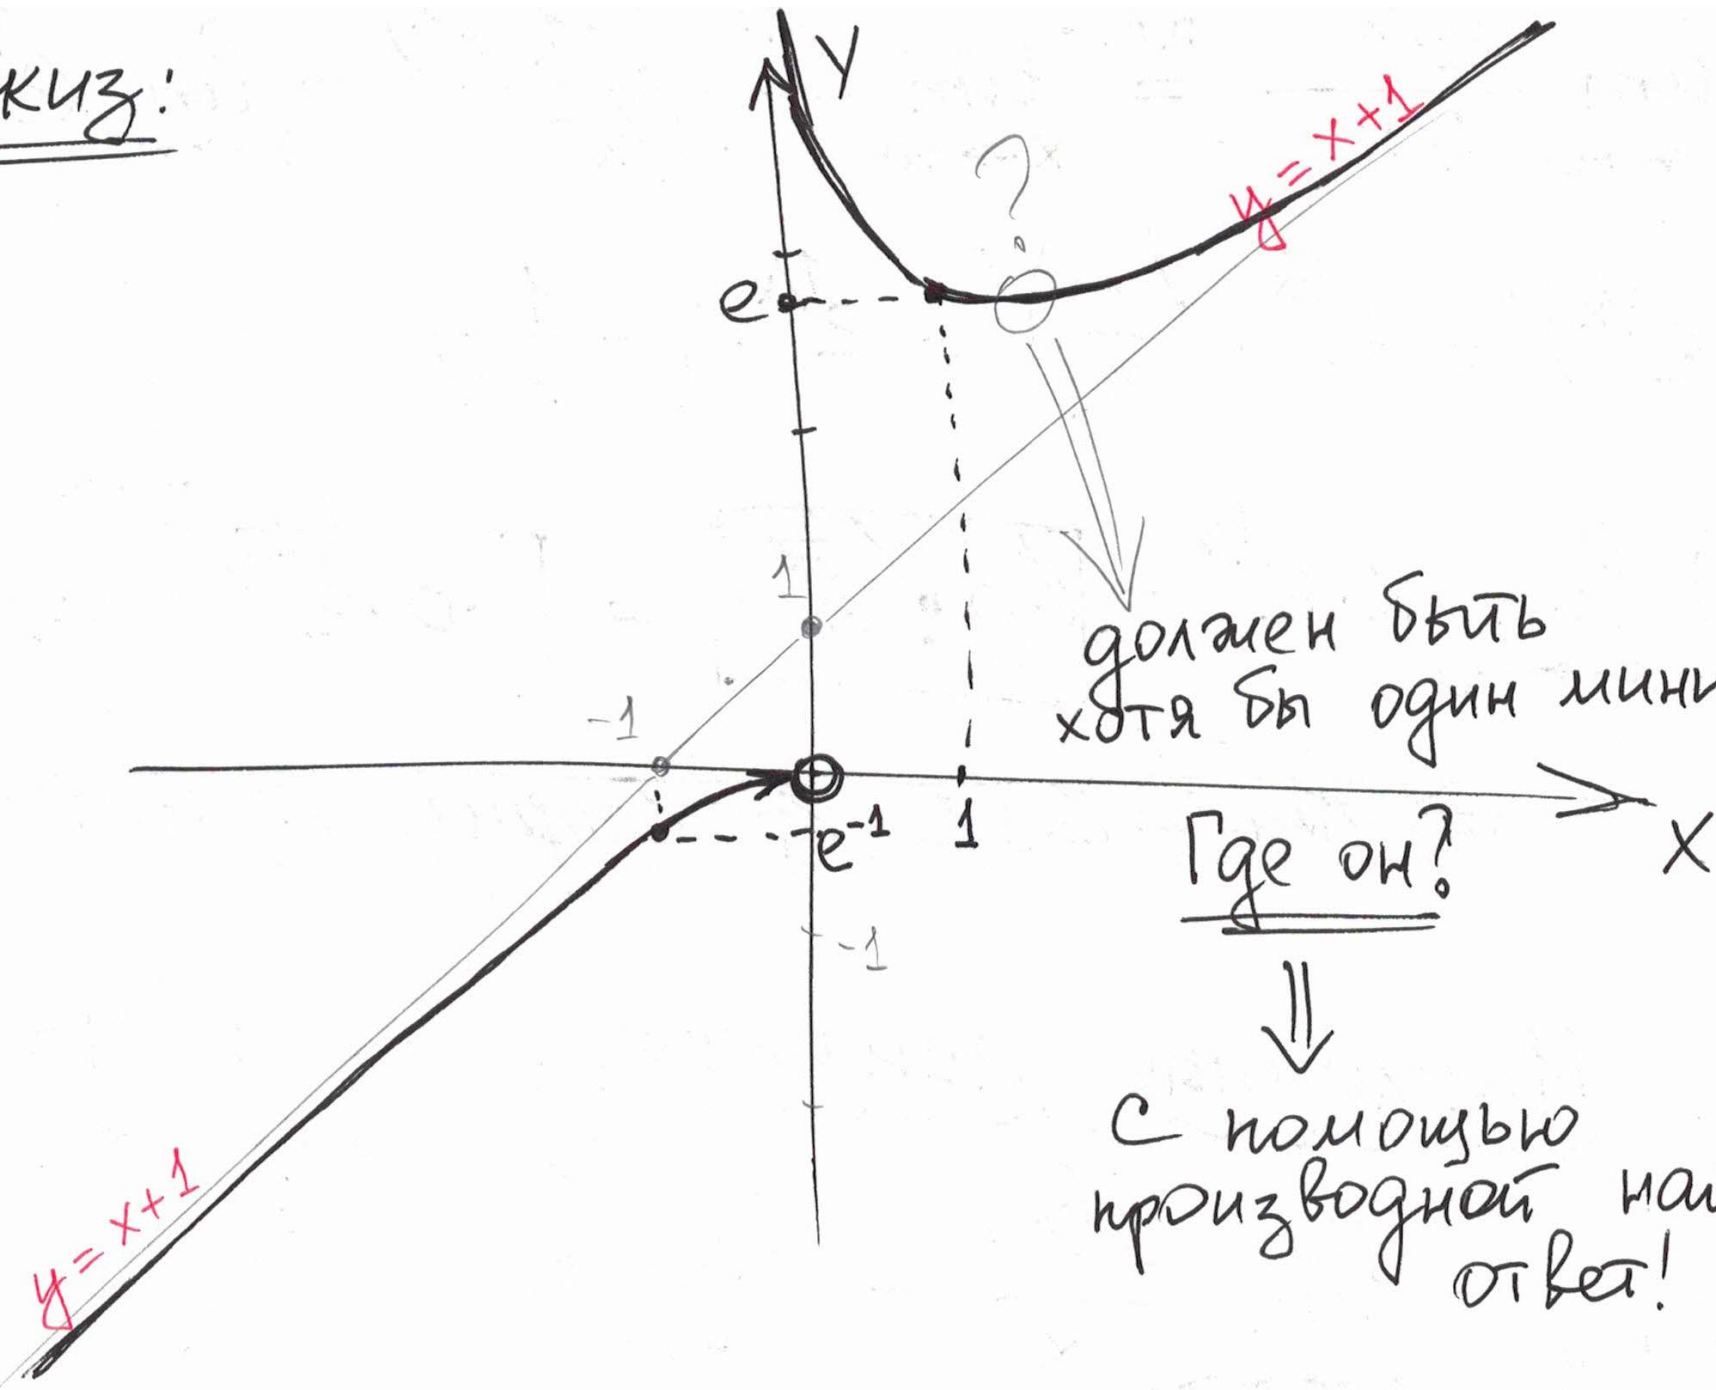 киз:
y
y = x + 1
?
e
1
должен быть
хотя бы один мини
-1
e⁻¹
1
x
Где он?
-1
С помощью
производной
ответ!
y = x + 1